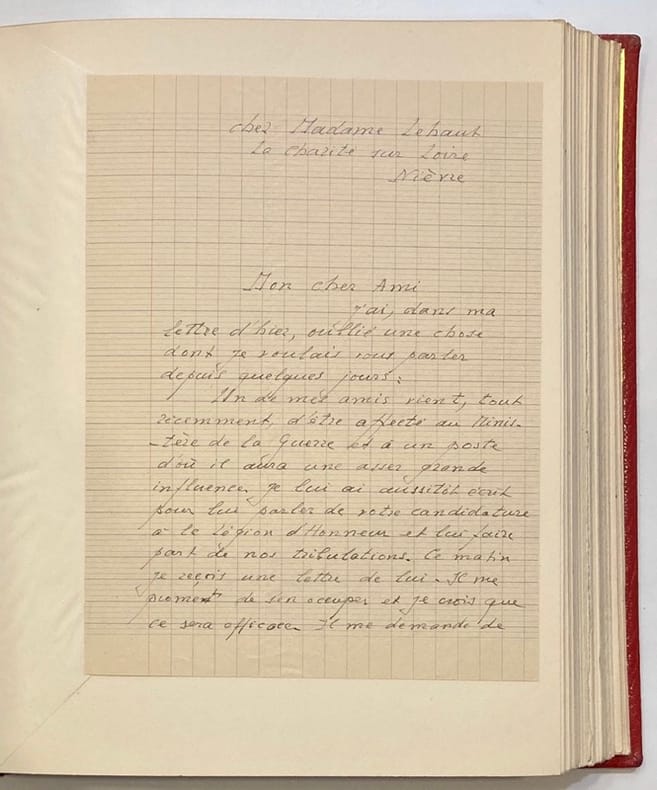 chez Madame Lehaut
La Charité sur Loire
Nièvre
Mon cher Ami
j'ai, dans ma
lettre d'hier, oublié une chose
dont je voulais vous parler
depuis quelques jours :
Un de mes amis vient, tout
récemment, d'être affecté au Minis-
-tère de la Guerre et à un poste
d'où il aura une assez grande
influence. Je lui ai aussitôt écrit
pour lui parler de votre candidature
à la Légion d'Honneur et lui faire
part de nos tribulations. Ce matin
je reçois une lettre de lui. Il me
promet de s'en occuper et je crois que
ce sera efficace. Il me demande de